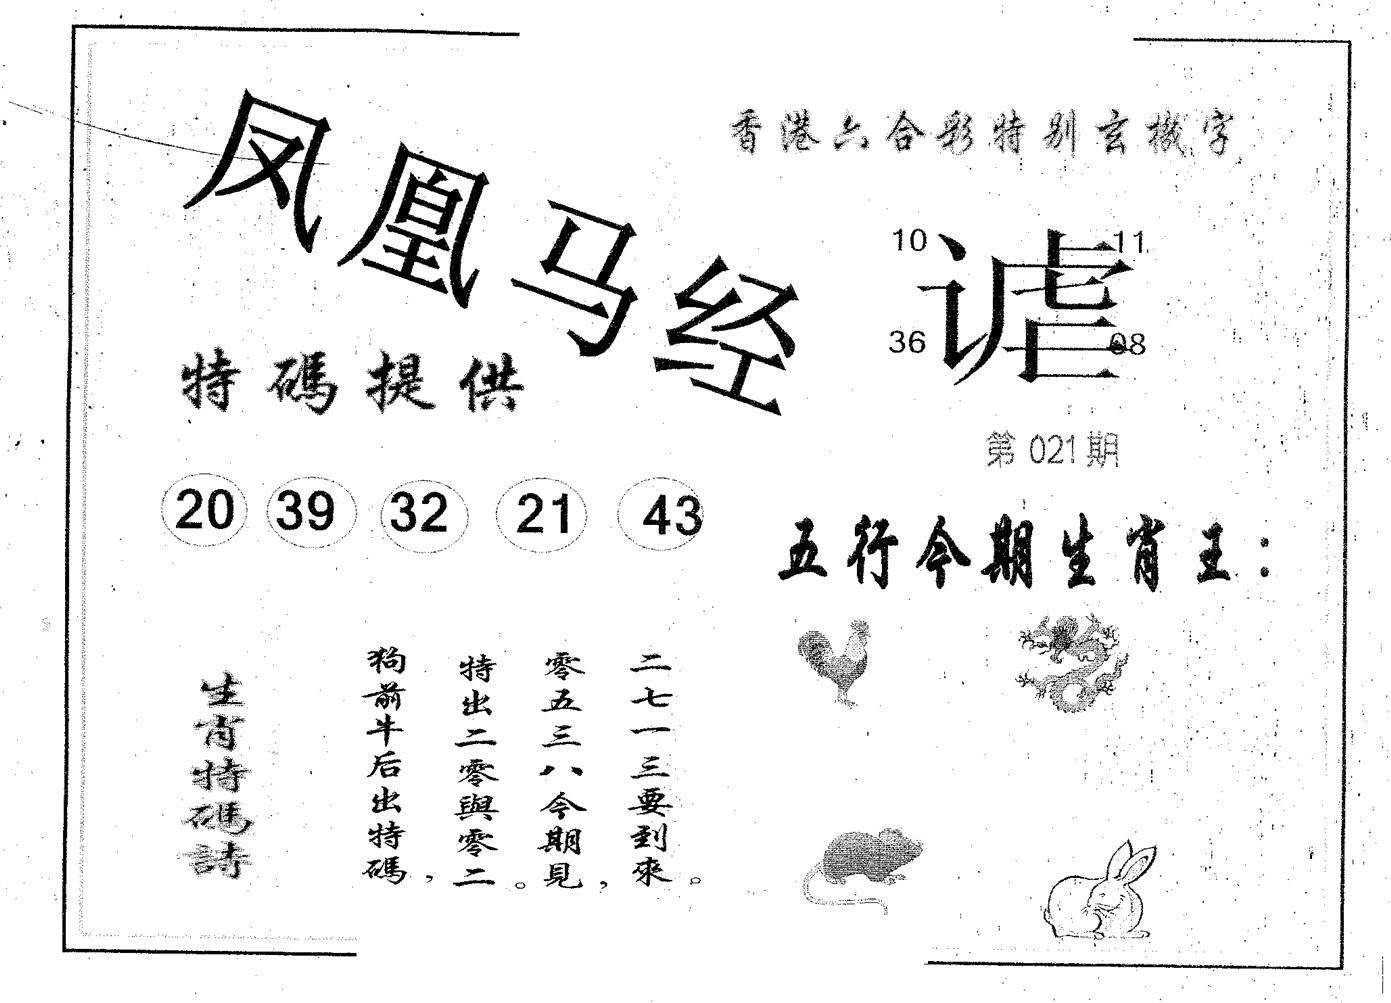 凤凰马经
香港六合彩特别玄機字
10 11
谑
36 08
第 021 期
特碼提供
20 39 32 21 43
五行今期生肖王：
生肖特碼詩
狗前牛后出特碼，
特出二零與零二。
零五三八今期見，
二七一三要到來。